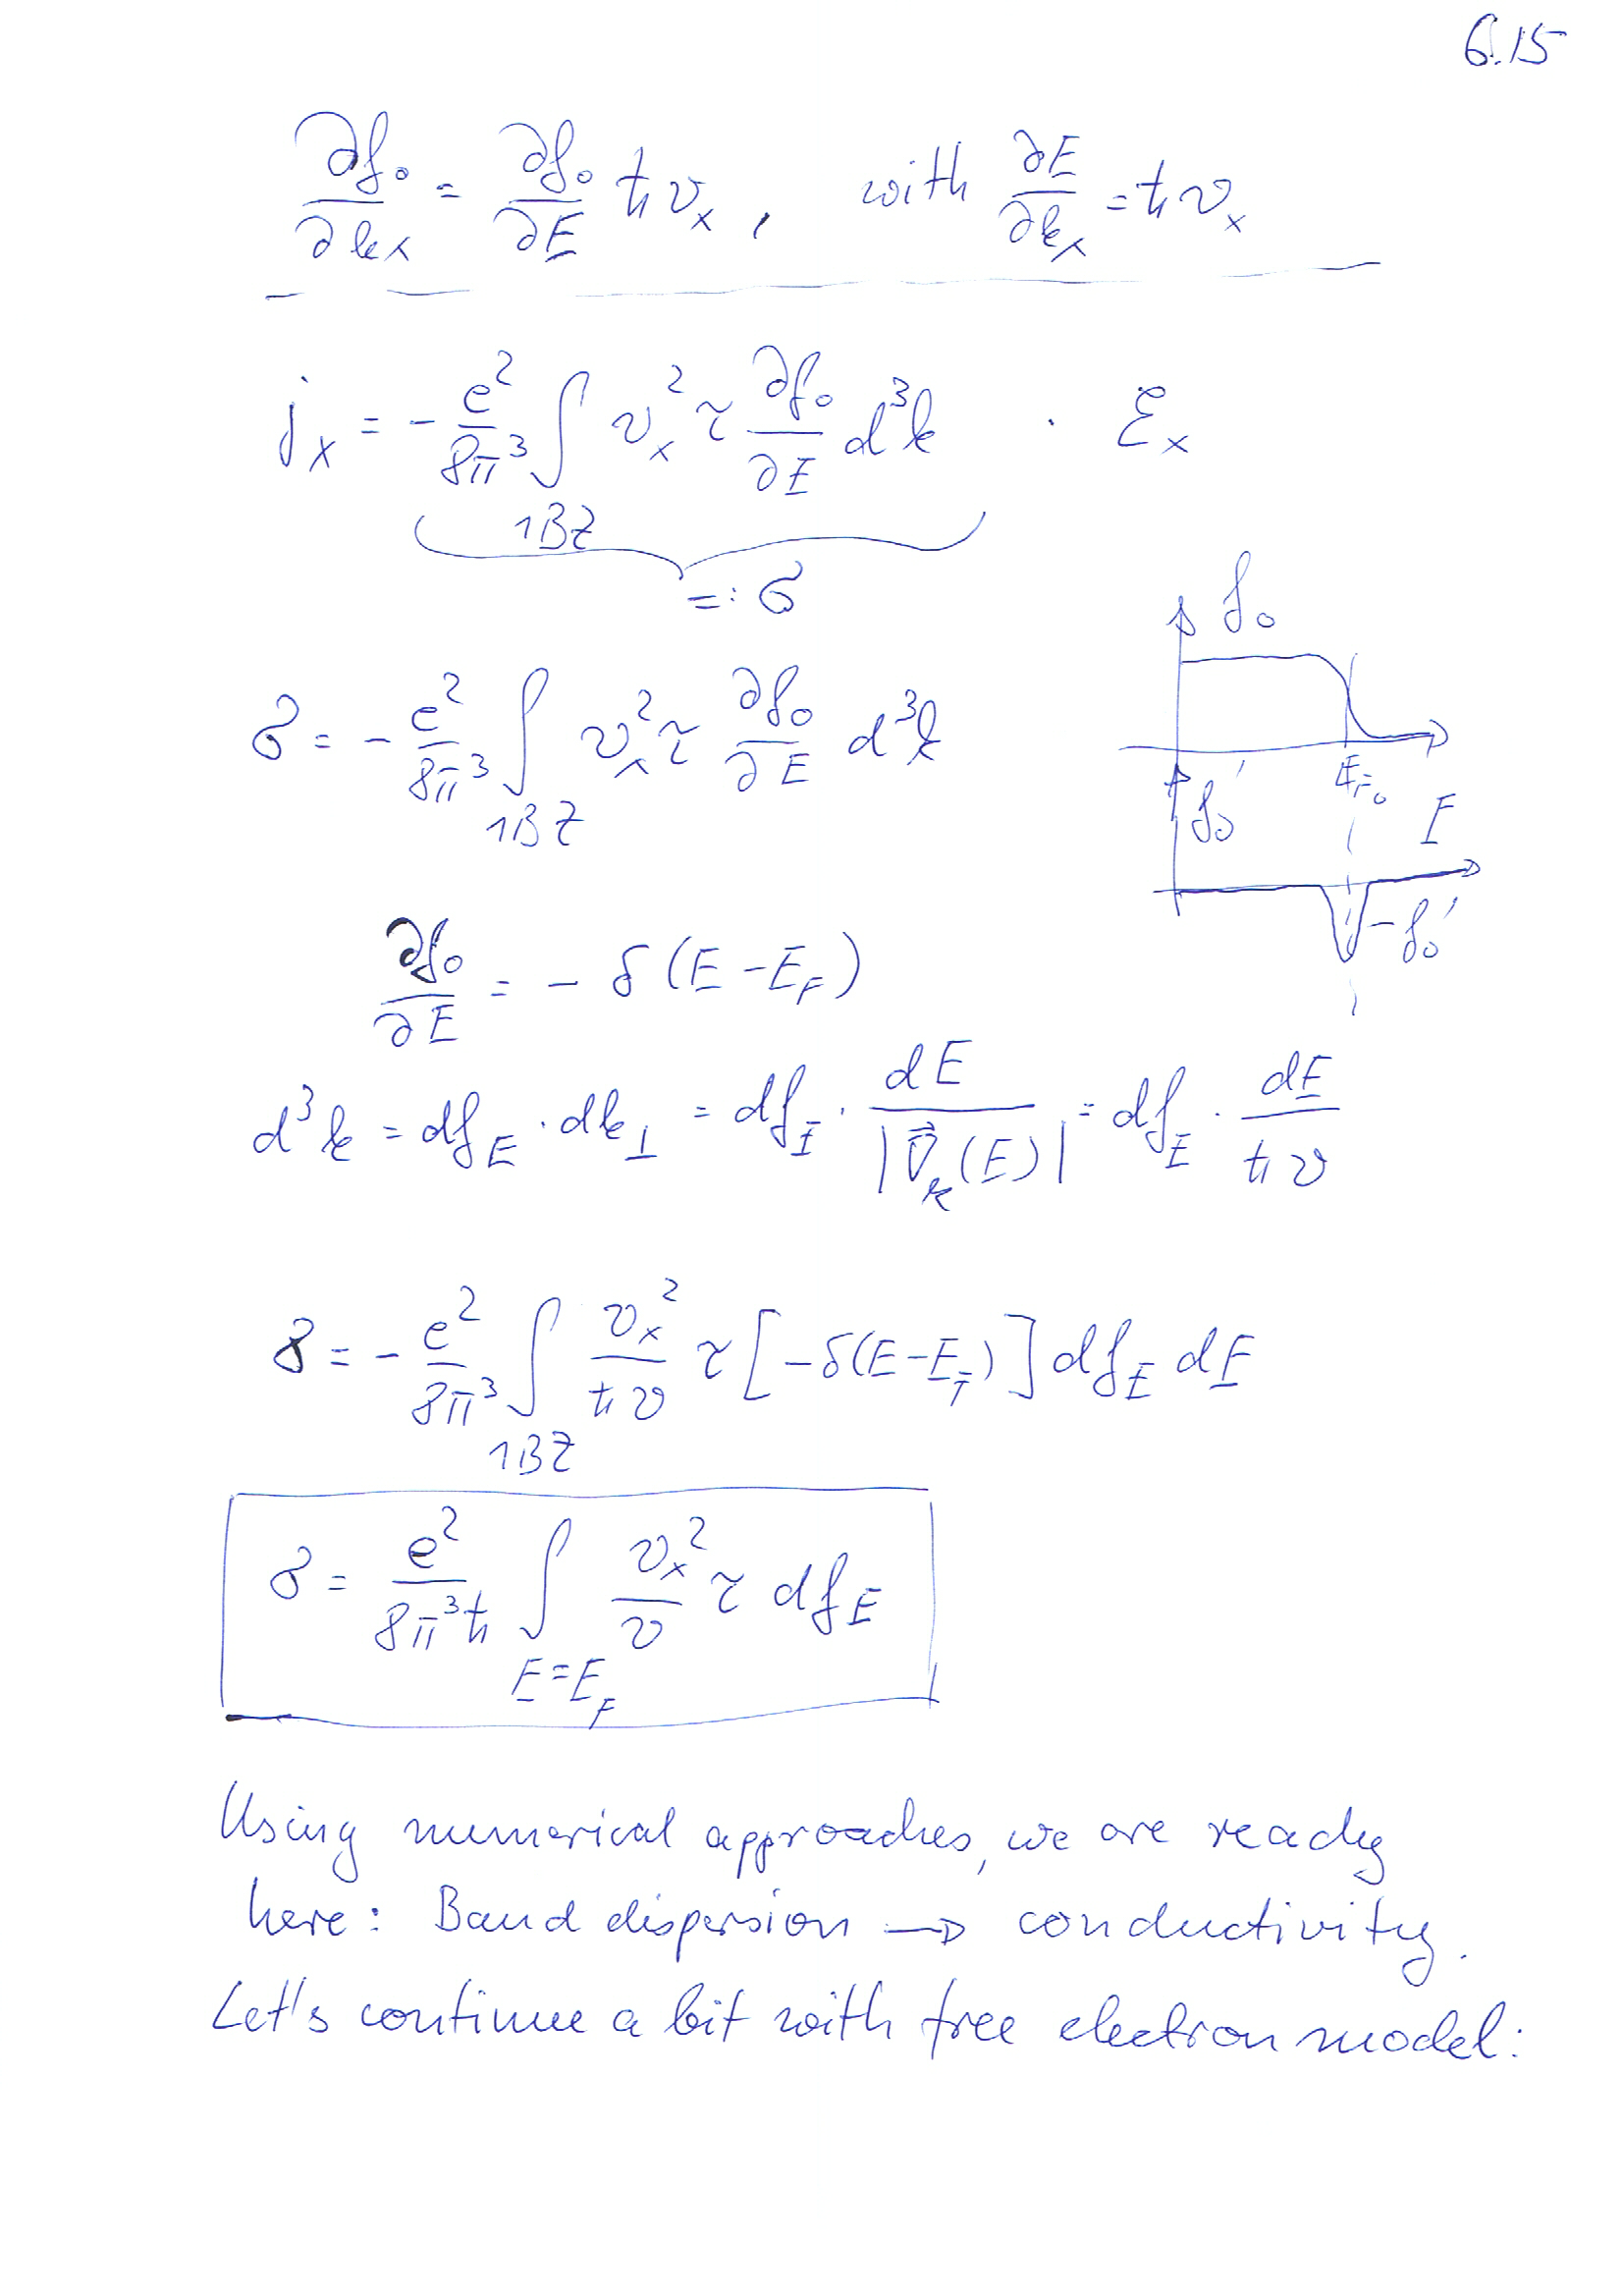 6.15
∂f₀/∂kₓ = ∂f₀/∂E ħvₓ, with ∂E/∂kₓ = ħvₓ
jₓ = - e²/8π³ ∫ vₓ² τ ∂f₀/∂E d³k · Ɛₓ
1BZ
=: σ
f₀
σ = - e²/8π³ ∫ vₓ² τ ∂f₀/∂E d³k
1BZ
E_F₀
f₀'
E
-f₀'
∂f₀/∂E = - δ(E-E_F)
d³k = df_E · dk_⊥ = df_E · dE/|∇⃗_k(E)| = df_E · dE/ħv
σ = - e²/8π³ ∫ vₓ²/ħv τ [-δ(E-E_F)] df_E dE
1BZ
σ = e²/8π³ħ ∫ vₓ²/v τ df_E
E=E_F
Using numerical approaches, we are ready
here: Band dispersion → conductivity.
Let's continue a bit with free electron model: